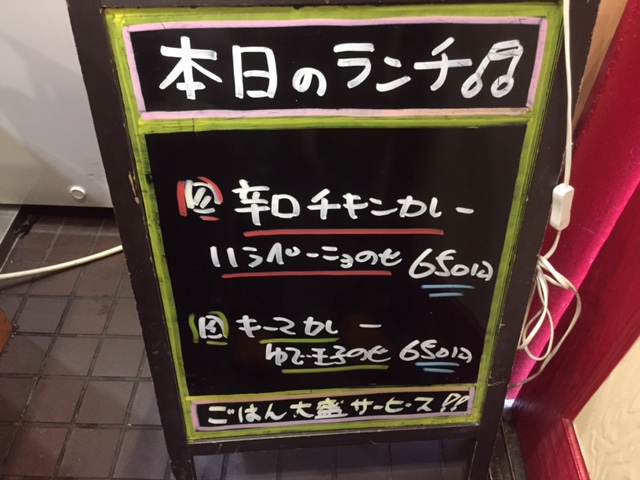 本日のランチ♫
辛口チキンカレー
ハラペーニョのせ 650円
キーマカレー
ゆで玉子のせ 650円
ごはん大盛サービス!!